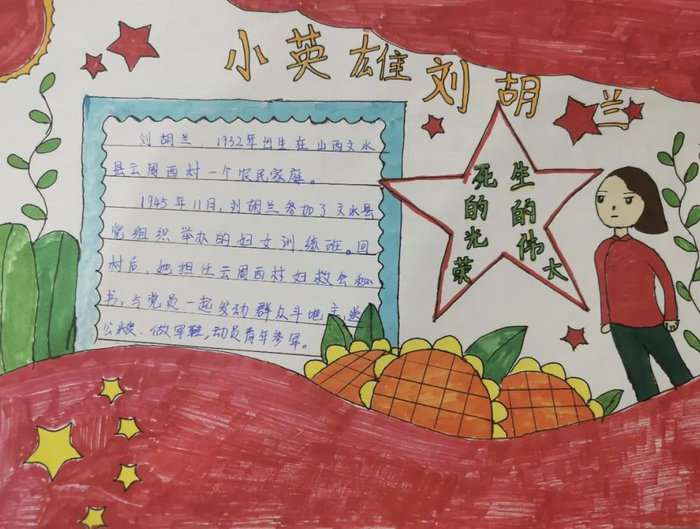 小英雄刘胡兰
刘胡兰,1932年出生在山西文水
县云周西村一个农民家庭。
1945年11月,刘胡兰参加了文水县
党组织举办的妇女训练班。回
村后,她担任云周西村妇救会秘
书,与党员一起发动群众斗地主,送
公粮、做军鞋,动员青年参军。
生的伟大
死的光荣